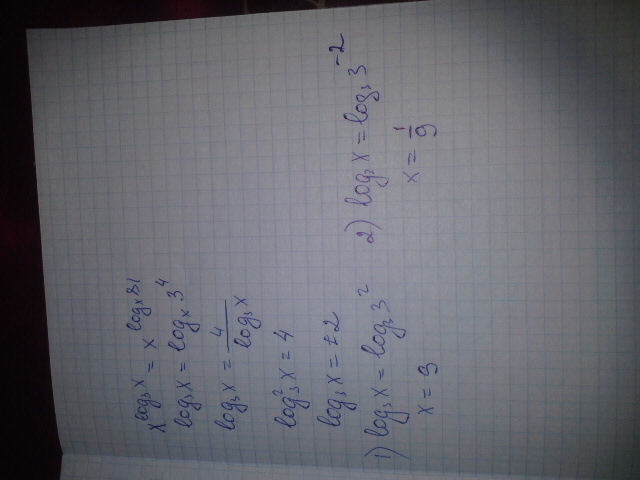 x^{log₃x} = x^{logₓ81}
log₃x = logₓ3⁴
log₃x = 4/log₃x
log₃²x = 4
log₃x = ±2
1) log₃x = log₃3² 2) log₃x = log₃3⁻²
x = 9 x = 1/9